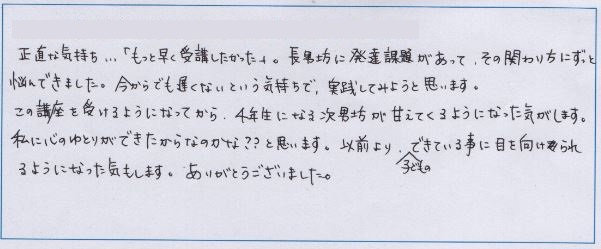 正直な気持ち…「もっと早く受講したかった」。長男坊に発達課題があって、その関わり方にずっと
悩んできました。今からでも遅くないという気持ちで、実践してみようと思います。
この講座を受けるようになってから、4年生になる次男坊が甘えてくるようになった気がします。
私に心のゆとりができたからなのかな??と思います。以前より、子どものできている事に目を向けられ
るようになった気もします。ありがとうございました。